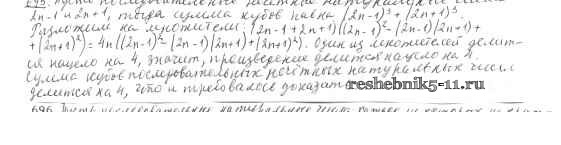 695. Пусть последовательные нечётные натуральные числа
2n-1 и 2n+1, тогда сумма кубов равна (2n-1)³+(2n+1)³.
Разложим на множители: (2n-1+2n+1)((2n-1)²-(2n-1)(2n+1)+
+(2n+1)²)=4n((2n-1)²-(2n-1)(2n+1)+(2n+1)²). Один из множителей делит-
ся нацело на 4, значит, произведение делится нацело на 4.
Сумма кубов последовательных нечётных натуральных чисел
делится на 4, что и требовалось доказать
reshebnik5-11.ru
696. Пусть последовательные натуральные числа